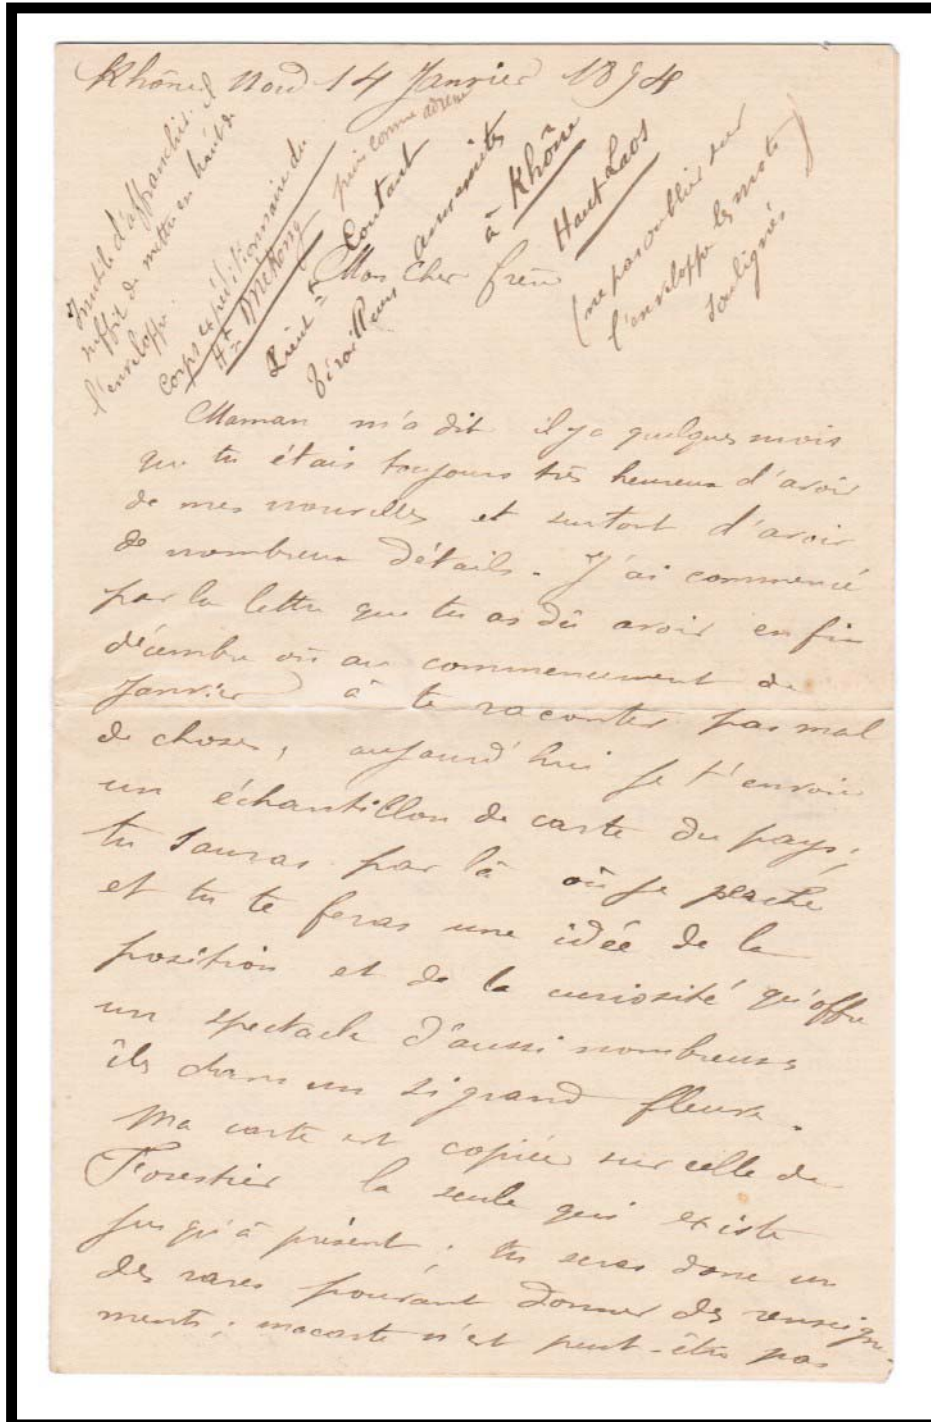 Khône Nord 14 Janvier 1894
Inutile d'affranchir. il
suffit de mettre en haut de
l'enveloppe.
Corps expéditionnaire du
Ht Mékong puis comme adresse
Lieut Coutant
Tirailleurs annamites
à Khône
Haut Laos
(ne pas oublier sur
l'enveloppe les mots
soulignés)
Mon cher frère
Maman m'a dit il y a quelques mois
que tu étais toujours très heureux d'avoir
de mes nouvelles et surtout d'avoir
de nombreux détails. J'ai commencé
par la lettre que tu as dû avoir en fin
décembre où au commencement de
Janvier à te raconter pas mal
de choses, aujourd'hui je t'envoie
un échantillon de carte du pays;
tu sauras par là où je perche
et tu te feras une idée de la
position et de la curiosité qu'offre
un spectacle d'aussi nombreuses
îles dans un si grand fleuve.
Ma carte est copiée sur celle de
Forestier la seule qui existe
jusqu'à présent; tu seras donc un
des rares pouvant donner des renseigne-
ments; ma carte n'est peut-être pas